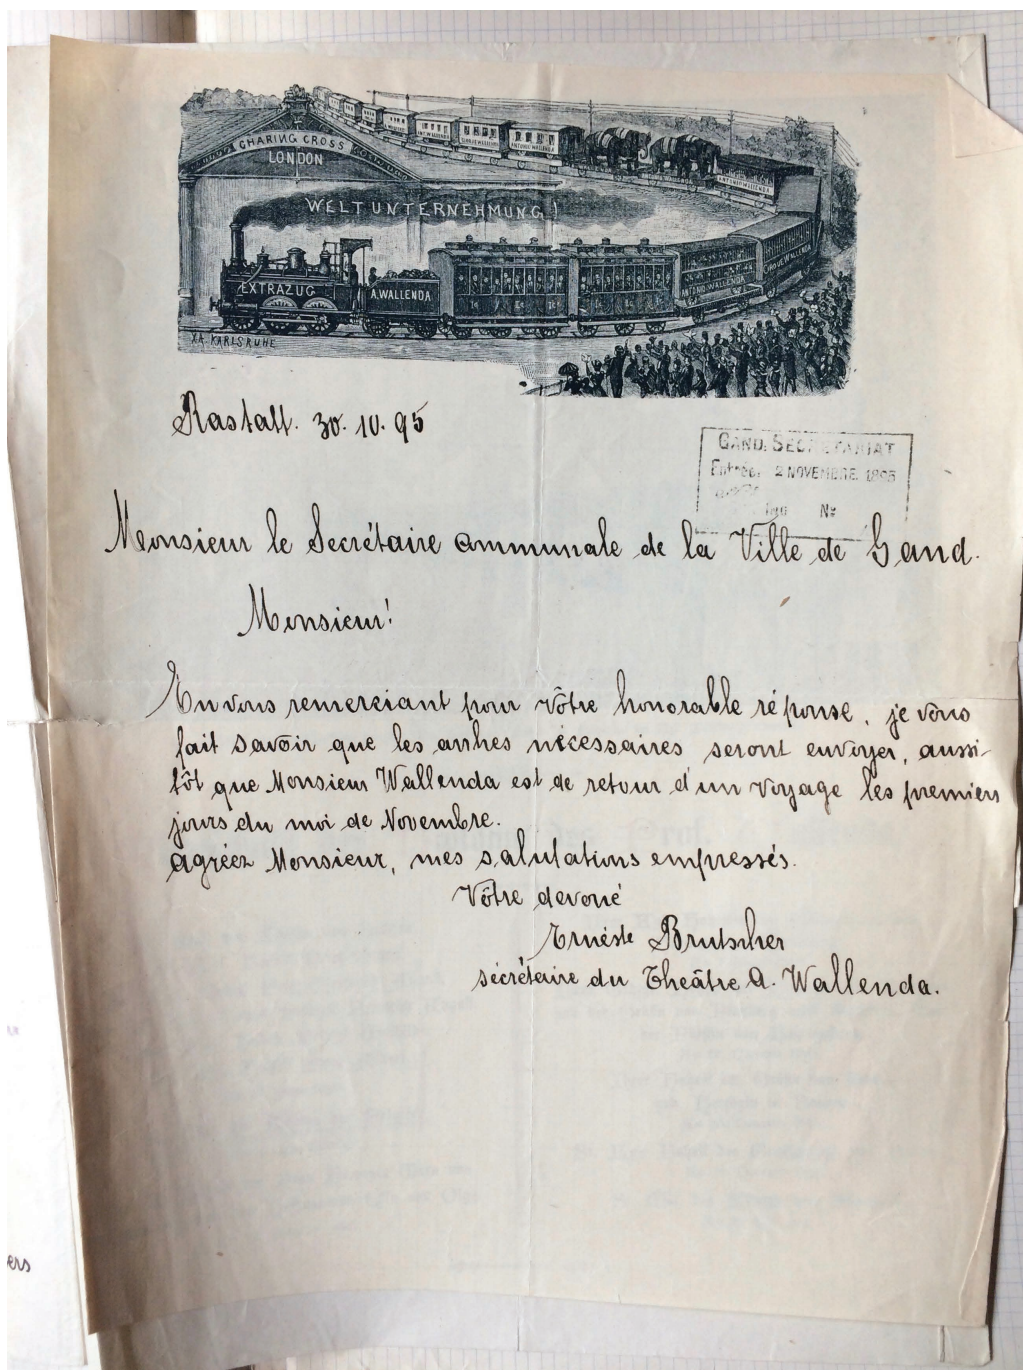 CHARING CROSS
LONDON
ANTONIO WALLENDA
WELTUNTERNEHMUNG!
EXTRAZUG
A. WALLENDA
ANTONIO WALLENDA
X.A. KARLSRUHE
Rastatt. 30. 10. 95
GAND. SECRETARIAT
Entrée. 2 NOVEMBRE. 1895
No
Monsieur le Secrétaire communale de la Ville de Gand.
Monsieur!
En vous remerciant pour vôtre honorable réponse, je vous
fait savoir que les arrhes nécessaires seront envoyer, aussi-
tôt que Monsieur Wallenda est de retour d'un voyage les premiers
jours du moi de Novembre.
agréez Monsieur, mes salutations empressés.
Vôtre devoué
Ernéste Brutscher
sécrétaire du Théâtre A. Wallenda.
ers